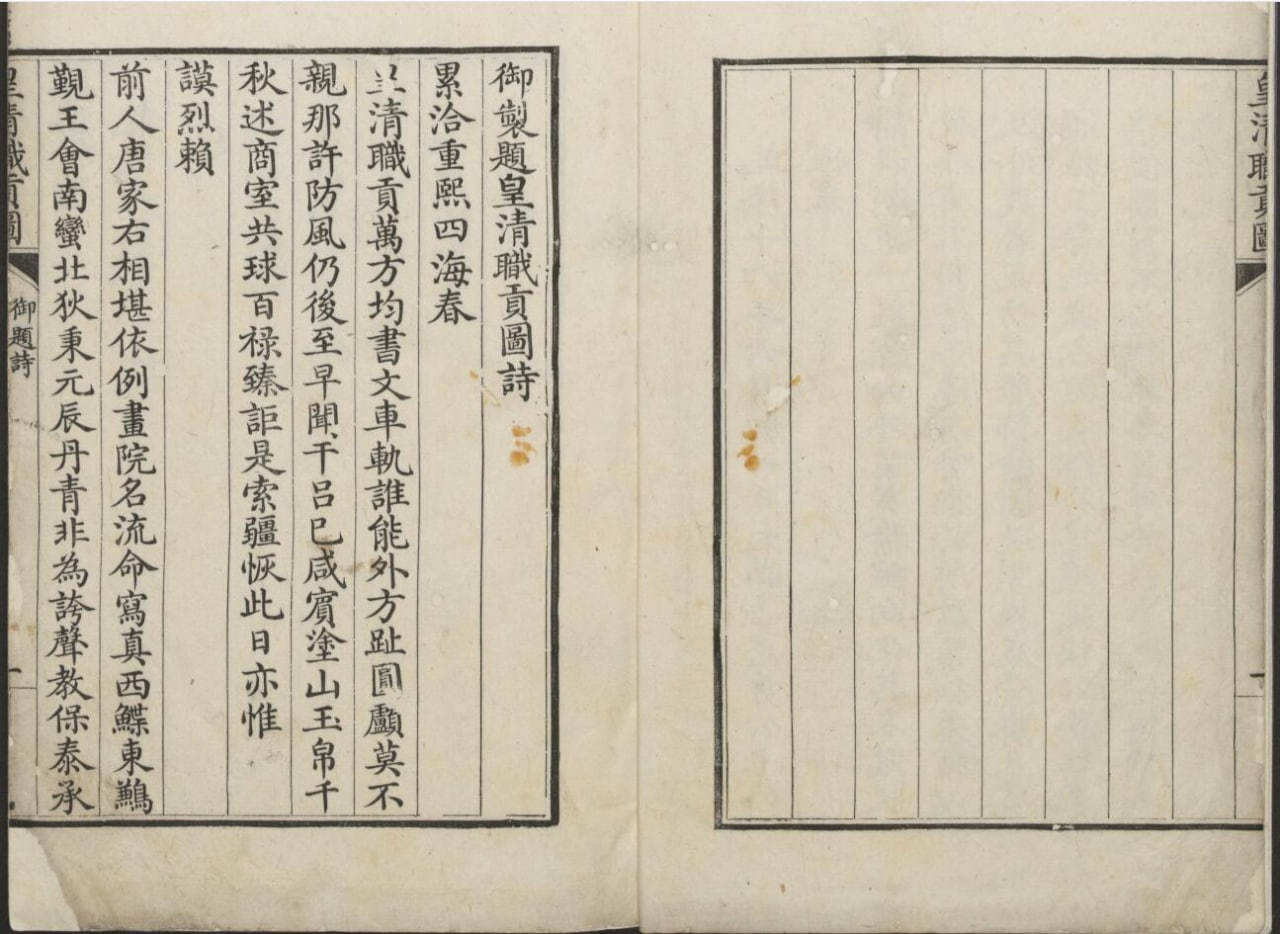 皇清職貢圖
一
御製題皇清職貢圖詩
累洽重熙四海春
皇清職貢萬方均書文車軌誰能外方趾圓顱莫不
親那許防風仍後至早聞干呂已咸賓塗山玉帛千
秋述商室共球百禄臻詎是索疆恢此日亦惟
謨烈賴
前人唐家右相堪依例畫院名流命寫真西鰈東鶼
覲王會南蠻北狄秉元辰丹青非為誇聲教保泰承
皇清職貢圖
御題詩
一